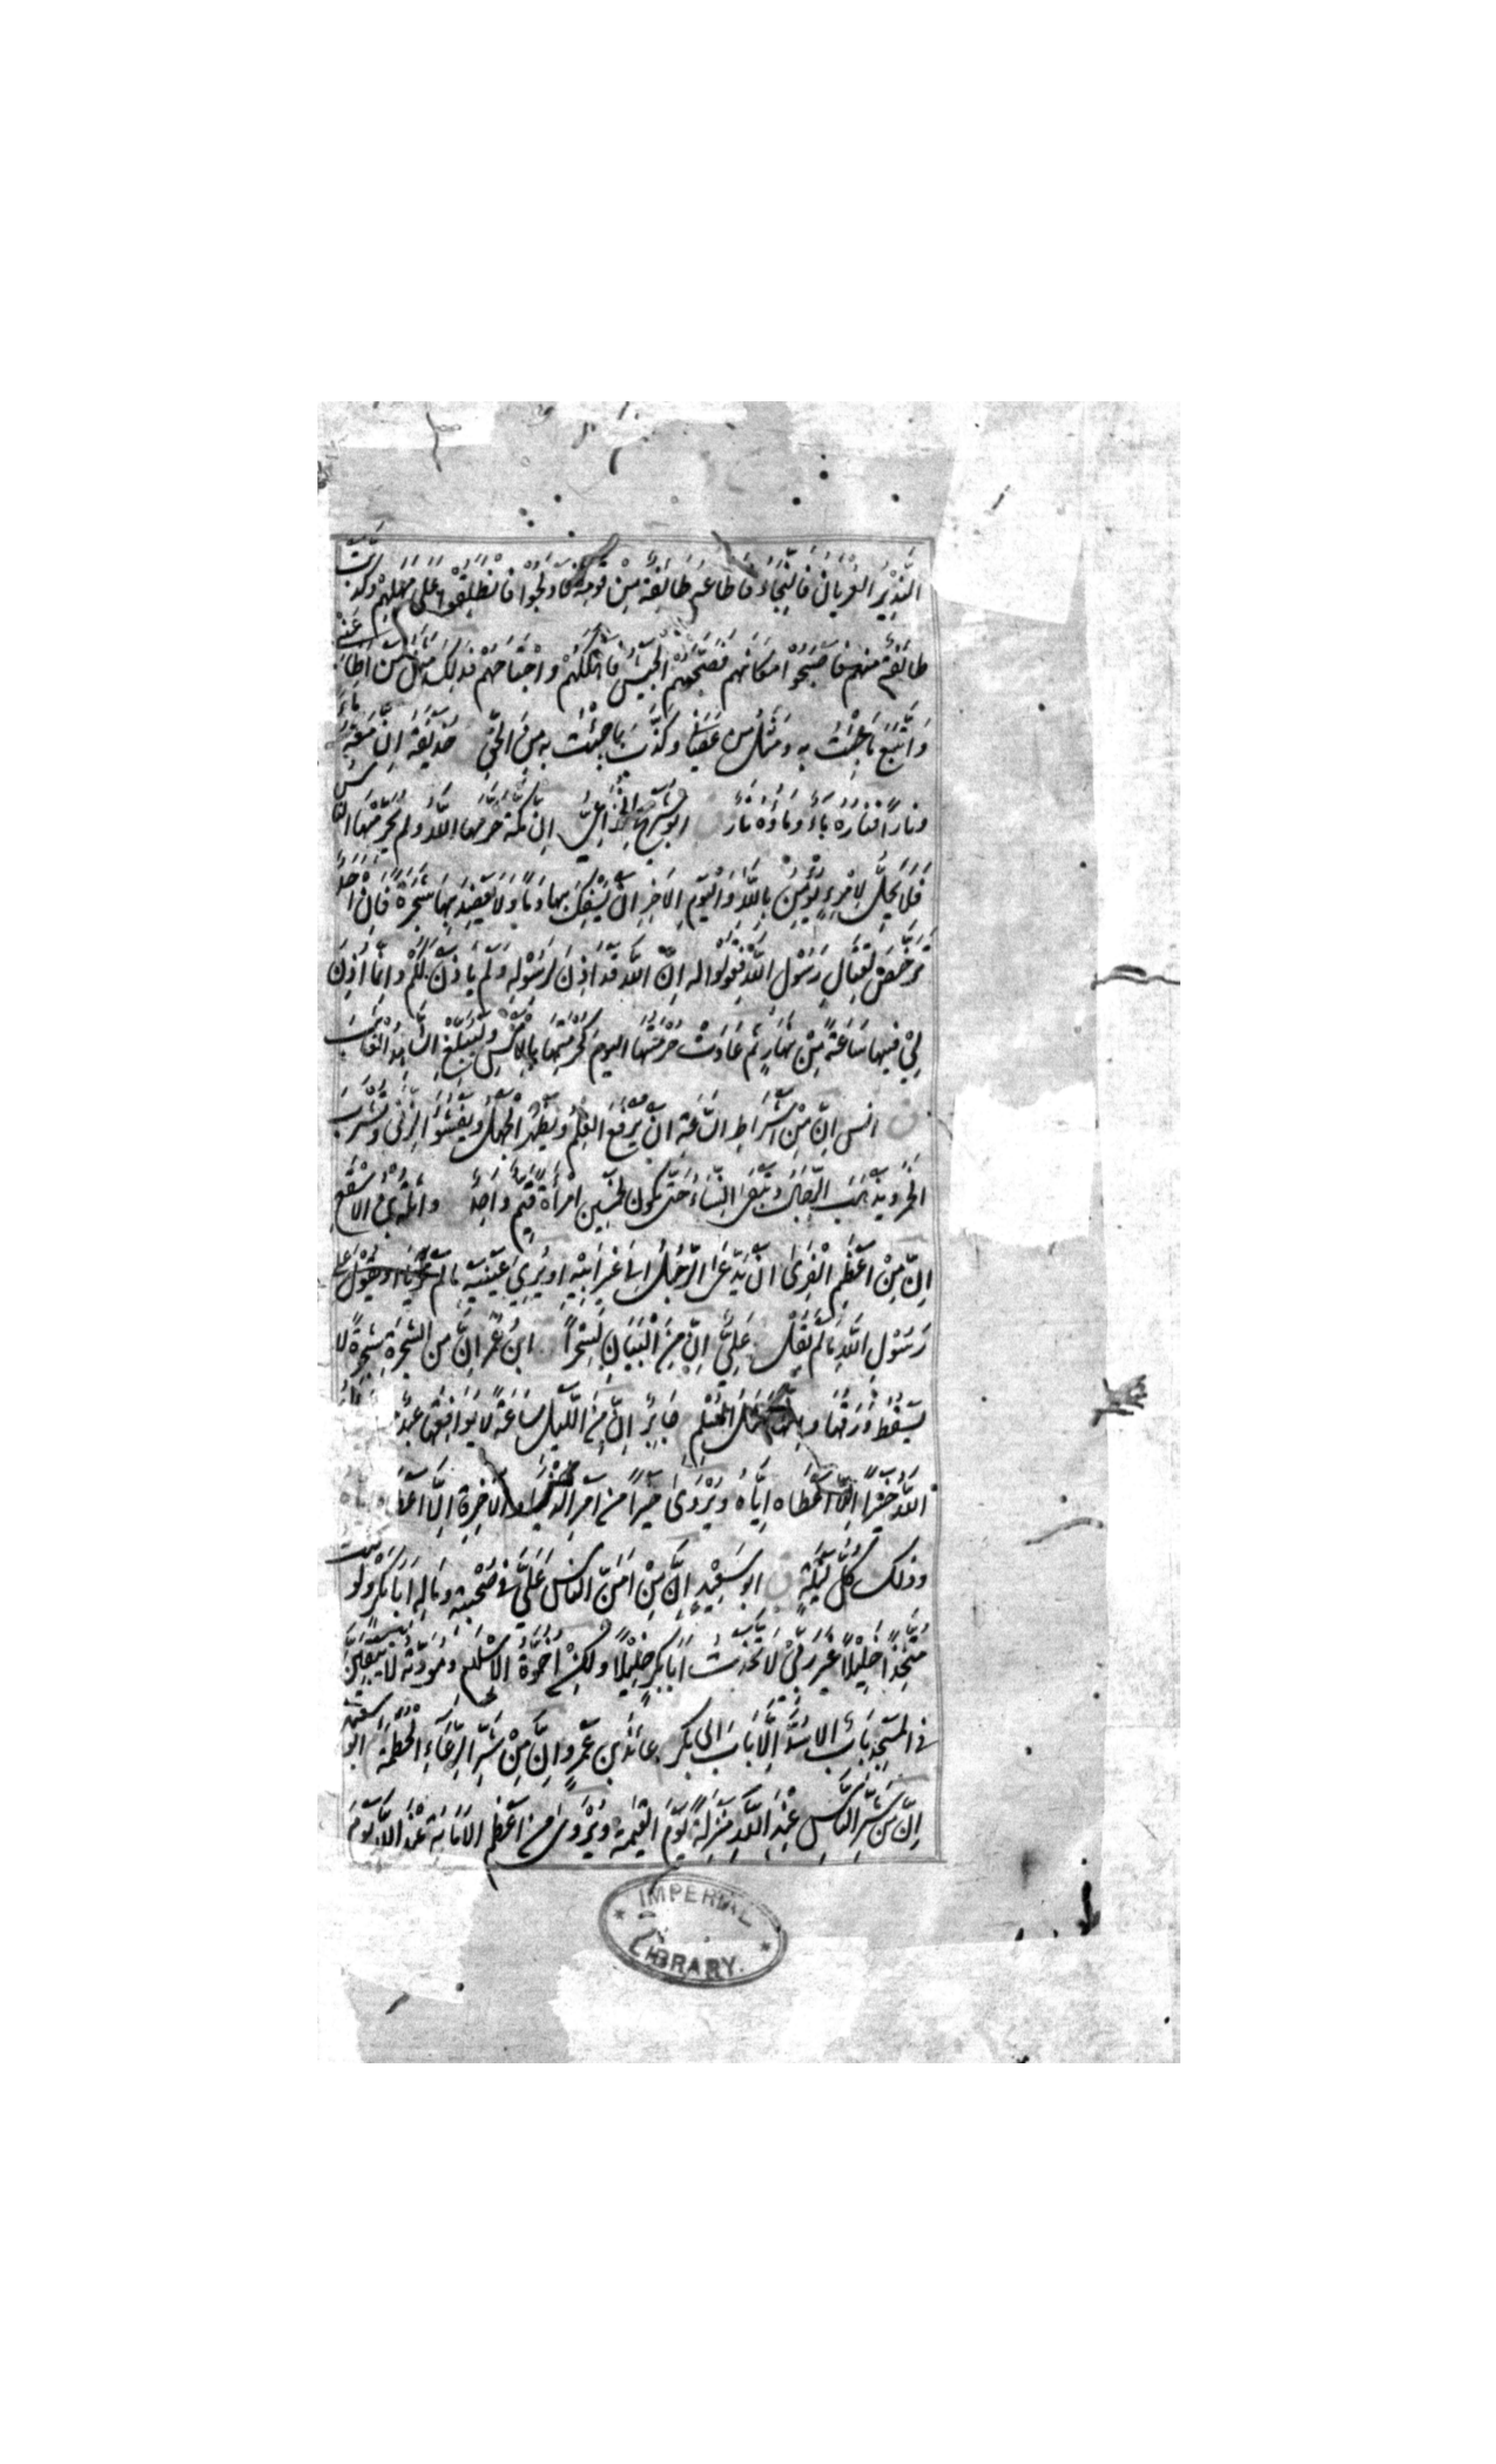 النَّذِيْرُ الْعُرْيَانُ فَالنَّجَاءَ فَاطَاعَهُ طَائِفَةٌ مِنْ قَوْمِهِ فَادْلَجُوْا فَانْطَلَقُوْا عَلَى مَهْلِهِمْ وكَذَّبَتْ
طَائِفَةٌ منهم فَاَصْبَحُوْا مَكَانَهُم فَصَبَّحَهُمْ الْجَيْشُ فَاَهْلَكَهُمْ وَاجْتَاحَهُمْ فَذَلِكَ مَثَلُ مَنْ اَطَاعَنِيْ
وَاتَّبَعَ مَا جِئْتُ بِهِ وَمَثَلُ مَن عَصَانِي وَكَذَّبَ بِمَا جِئْتُ بِهِ مِنَ الْحَقِّ حُذَيْفَةُ اِنَّ مَعَهُ مَاءً
ونَارًا فَنَارُهُ مَاءٌ وَمَاؤُهُ نَارٌ ابو شُرَيْحٍ الْخُزَاعِيُّ اِنَّ مَكَّةَ حَرَّمَهَا اللّٰهُ ولم يُحَرِّمْهَا النَّاسُ
فَلَا يَحِلُّ لِامْرِءٍ يُؤْمِنُ بِاللّٰهِ وَالْيَوْمِ الْاٰخِرِ اَنْ يَسْفِكَ بِهَا دَمًا وَلَا يَعْضِدَ بِهَا شَجَرَةً فَاِنْ اَحَدٌ
تَرَخَّصَ لِقِتَالِ رَسُوْلِ اللّٰهِ فَقُوْلُوْا لَهُ اِنَّ اللّٰهَ قَدْ اَذِنَ لِرَسُوْلِهِ وَلَمْ يَاْذَنْ لَكُمْ وَاِنَّمَا اَذِنَ
لِيْ فِيهَا سَاعَةً مِنْ نَهَارٍ ثُمَّ عَادَتْ حُرْمَتُهَا الْيَوْمَ كَحُرْمَتِهَا بِالْاَمْسِ وَلْيُبَلِّغِ الشَّاهِدُ الْغَائِبَ
ق انس اِنَّ مِنْ اَشْرَاطِ السَّاعَةِ اَنْ يُرْفَعَ الْعِلْمُ وَيَظْهَرَ الْجَهْلُ وَيَفْشُوَ الزِّنٰى وَتُشْرَبَ
الْخَمْرُ وَيَذْهَبَ الرِّجَالُ وَتَبْقَى النِّسَاءُ حَتّٰى يَكُوْنَ لِخَمْسِيْنَ امْرَاَةً قَيِّمٌ وَاحِدٌ واثلة بن الْاَسْقَعِ
اِنَّ مِنْ اَعْظَمِ الْفِرٰى اَنْ يَدَّعِيَ الرَّجُلُ اِلٰى غَيْرِ اَبِيْهِ اَوْ يُرِيَ عَيْنَيْهِ مَا لَمْ تَرَيَا اَوْ يَقُوْلَ عَلٰى
رَسُوْلِ اللّٰهِ مَا لَمْ يَقُلْ عَلِيٌّ اِنَّ مِنَ الْبَيَانِ لَسِحْرًا ق ابنُ عُمَرَ اِنَّ مِنَ الشَّجَرَةِ شَجَرَةً لَا
يَسْقُطُ وَرَقُهَا وَاِنَّهَا مَثَلُ الْمُسْلِمِ جَابِرٌ اِنَّ مِنَ اللَّيْلِ سَاعَةً لَا يُوَافِقُهَا عَبْدٌ
اللّٰهَ خَيْرًا اِلَّا اَعْطَاهُ اِيَّاهُ وَيُرْوٰى خَيْرًا مِنْ اَمْرِ الدُّنْيَا وَالْاٰخِرَةِ اِلَّا اَعْطَاهُ
وَذٰلِكَ كُلَّ لَيْلَةٍ ق ابو سَعِيْدٍ اِنَّ مِنْ اَمَنِّ النَّاسِ عَلَيَّ فِيْ صُحْبَتِهِ وَمَالِهِ اَبَا بَكْرٍ وَلَوْ كُنْتُ
مُتَّخِذًا خَلِيْلًا غَيْرَ رَبِّيْ لَاتَّخَذْتُ اَبَا بَكْرٍ خَلِيْلًا وَلٰكِنْ اُخُوَّةُ الْاِسْلَامِ وَمَوَدَّتُهُ لَا يَبْقَيَنَّ
فِي الْمَسْجِدِ بَابٌ اِلَّا سُدَّ اِلَّا بَابَ ابى بَكْرٍ عائذ بن عَمْرٍو اِنَّ مِنْ شَرِّ الرِّعَاءِ الْحُطَمَةَ ابو سَعِيْدٍ
اِنَّ مِنْ شَرِّ النَّاسِ عِنْدَ اللّٰهِ مَنْزِلَةً يَوْمَ الْقِيٰمَةِ وَيُرْوٰى مِنْ اَعْظَمِ الْاَمَانَةِ عِنْدَ اللّٰهِ يَوْمَ
IMPERIAL
LIBRARY.